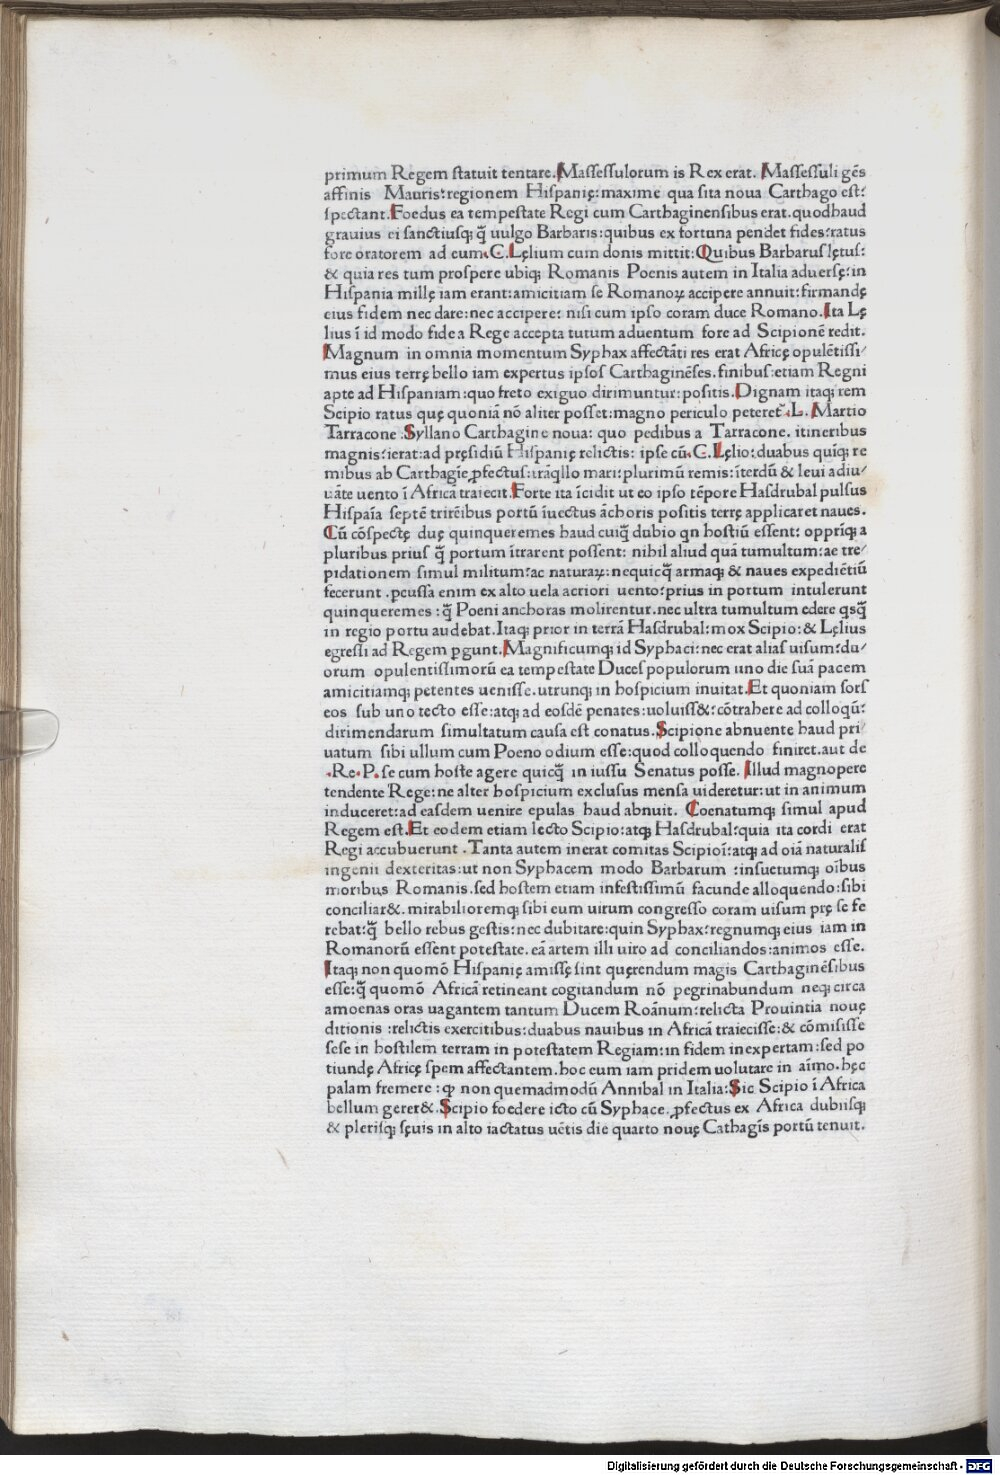 primum Regem ſtatuit tentare. Maſſeſſulorum is Rex erat. Maſſeſſuli gẽs
affinis Mauris: regionem Hiſpanię: maxime qua ſita noua Carthago eſt:
ſpectant. Foedus ea tempeſtate Regi cum Carthaginenſibus erat. quod haud
grauius ei ſanctiuſq; q̃ uulgo Barbaris: quibus ex fortuna pendet fides: ratus
fore oratorem ad eum. C. Lęlium cum donis mittit: Quibus Barbarus lętus:
& quia res tum proſpere ubiq; Romanis Poenis autem in Italia aduerſę: in
Hiſpania millę iam erant: amicitiam ſe Romanoꝝ accipere annuit: firmandę
eius fidem nec dare: nec accipere: niſi cum ipſo coram duce Romano. Ita Lę
lius ĩ id modo fide a Rege accepta tutum aduentum fore ad Scipionẽ redit.
Magnum in omnia momentum Syphax affectãti res erat Africę opulẽtiſſi/
mus eius terrę bello iam expertus ipſos Carthaginẽſes. finibuſ etiam Regni
apte ad Hiſpaniam: quo freto exiguo dirimuntur: poſitis. Dignam itaq; rem
Scipio ratus quę quoniã nõ aliter poſſet: magno periculo peteret̃. L. Martio
Tarracone. Syllano Carthagine noua: quo pedibus a Tarracone. itineribus
magnis: ierat: ad pręſidiũ Hiſpanię relictis: ipſe cũ. C. Lęlio: duabus quĩq; re
mibus ab Carthagĩe ꝓfectus: trãqllo mari: plurimũ remis: ĩterdũ & leui adiu/
uãte uento ĩ Africã traiecit. Forte ita ĩcidit ut eo ipſo tẽpore Haſdrubal pulſus
Hiſpaĩa ſeptẽ trirẽibus portũ ĩuectus ãchoris poſitis terrę applicaret naues.
Cũ cõſpectę duę quinqueremes haud cuiq̃ dubio qn hoſtiũ eſſent: opprĩq; a
pluribus priuſ q̃ portum ĩtrarent poſſent: nihil aliud quã tumultum: ac tre/
pidationem ſimul militum: ac nautaꝝ: nequicq̃ armaq; & naues expediẽtiũ
fecerunt. ꝑcuſſa enim ex alto uela acriori uento: prius in portum intulerunt
quinqueremes: q̃ Poeni anchoras molirentur. nec ultra tumultum edere qsq̃
in regio portu audebat. Itaq; prior in terrã Haſdrubal: mox Scipio: & Lęlius
egreſſi ad Regem ꝑgunt. Magnificumq; id Syphaci: nec erat aliaſ uiſum: du/
orum opulentiſſimorũ ea tempeſtate Duceſ populorum uno die ſuã pacem
amicitiamq; petentes ueniſſe. utrunq; in hoſpicium inuitat. Et quoniam forſ
eos ſub uno tecto eſſe: atq; ad eoſdẽ penates: uoluiſſ&: cõtrahere ad colloqũ:
dirimendarum ſimultatum cauſa eſt conatus. Scipione abnuente haud pri/
uatum ſibi ullum cum Poeno odium eſſe: quod colloquendo finiret. aut de
.Re.P. ſe cum hoſte agere quicq̃ in iuſſu Senatus poſſe. Illud magnopere
tendente Rege: ne alter hoſpicium excluſus menſa uideretur: ut in animum
induceret: ad eaſdem uenire epulas haud abnuit. Coenatumq; ſimul apud
Regem eſt. Et eodem etiam lecto Scipio: atq; Haſdrubal: quia ita cordi erat
Regi accubuerunt. Tanta autem inerat comitas Scipioĩ: atq; ad oĩa naturaliſ
ingenii dexteritas: ut non Syphacem modo Barbarum: inſuetumq; oĩbus
moribus Romanis. ſed hoſtem etiam infeſtiſſimũ facunde alloquendo: ſibi
conciliar&. mirabilioremq; ſibi eum uirum congreſſo coram uiſum prę ſe fe
rebat: q̃ bello rebus geſtis: nec dubitare: quin Syphax: regnumq; eius iam in
Romanorũ eſſent poteſtate. eã artem illi uiro ad conciliandos: animos eſſe.
Itaq; non quomõ Hiſpanię amiſſę ſint quęrendum magis Carthaginẽſibus
eſſe: q̃ quomõ Africã retineant cogitandum nõ ꝑegrinabundum neq; circa
amoenas oras uagantem tantum Ducem Roãnum: relicta Prouintia nouę
ditionis: relictis exercitibus: duabus nauibus in Africã traieciſſe: & cõmiſiſſe
ſeſe in hoſtilem terram in poteſtatem Regiam: in fidem inexpertam: ſed po
tiundę Africę ſpem affectantem. hoc eum iam pridem uolutare in aĩmo. hęc
palam fremere: ꝙ non quemadmodũ Annibal in Italia: Sic Scipio ĩ Africa
bellum gerer&. Scipio foedere icto cũ Syphace. ꝓfectus ex Africa dubiiſq;
& pleriſq; ſęuis in alto iactatus uẽtis die quarto nouę Cathagĩs portũ tenuit.
Digitalisierung gefördert durch die Deutsche Forschungsgemeinschaft - DFG